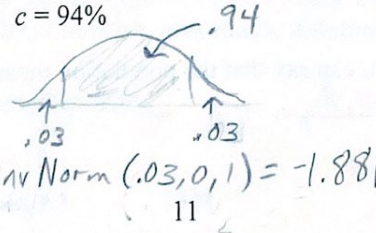 c = 94%
.94
.03
.03
nv Norm (.03,0,1) = -1.881
11